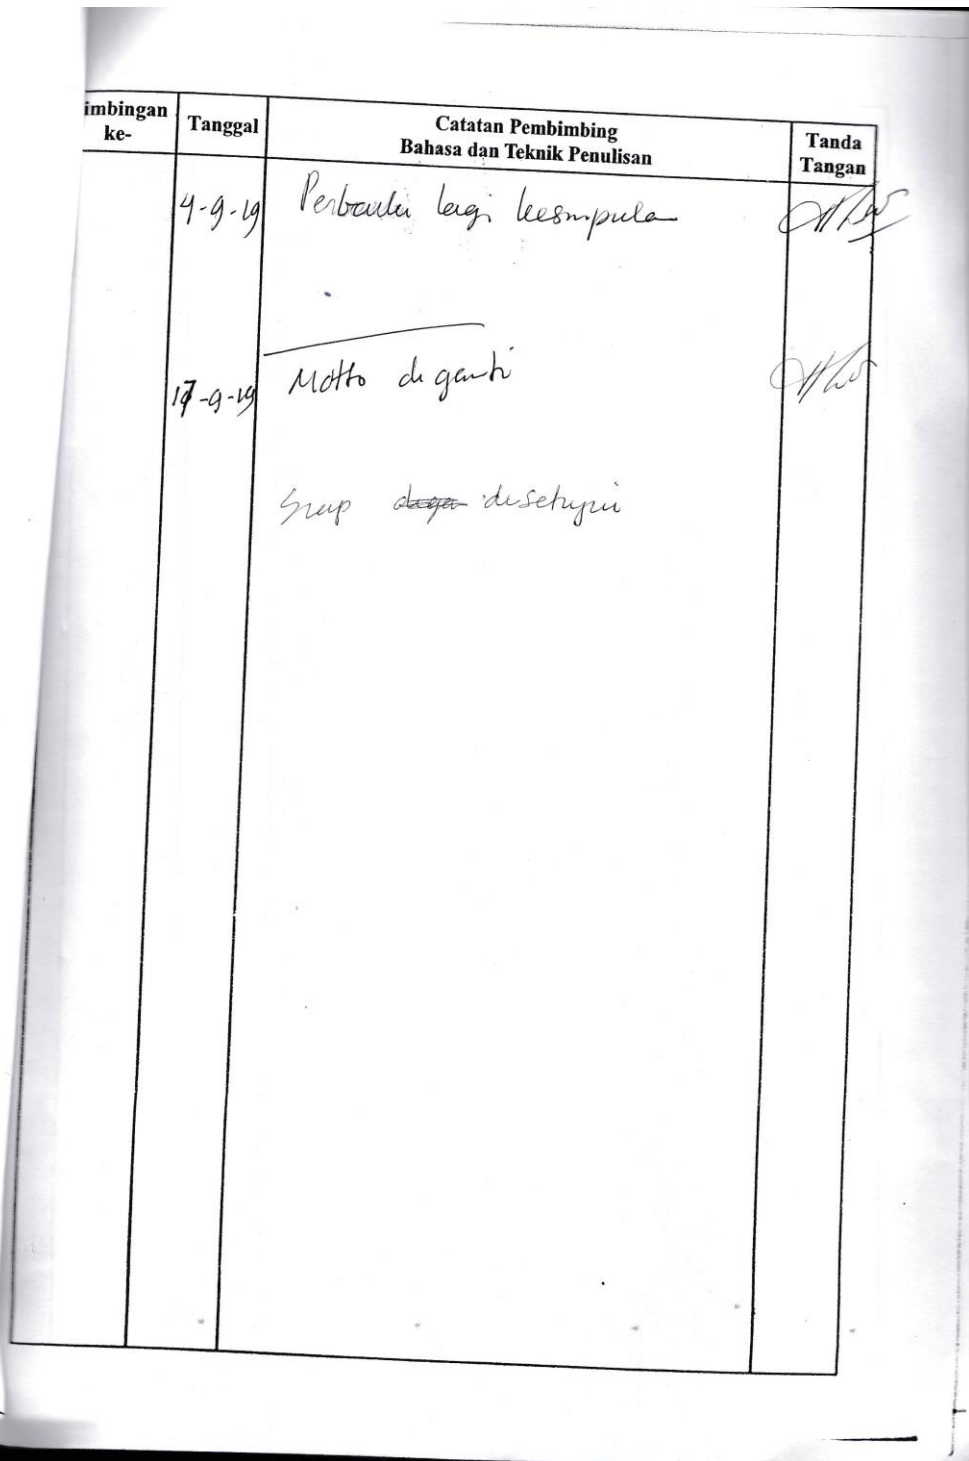 imbingan
ke-
Tanggal
Catatan Pembimbing
Bahasa dan Teknik Penulisan
Tanda
Tangan
4-9-19 Perbaiki lagi kesimpula
17-9-19 Motto diganti
Siap disetujui